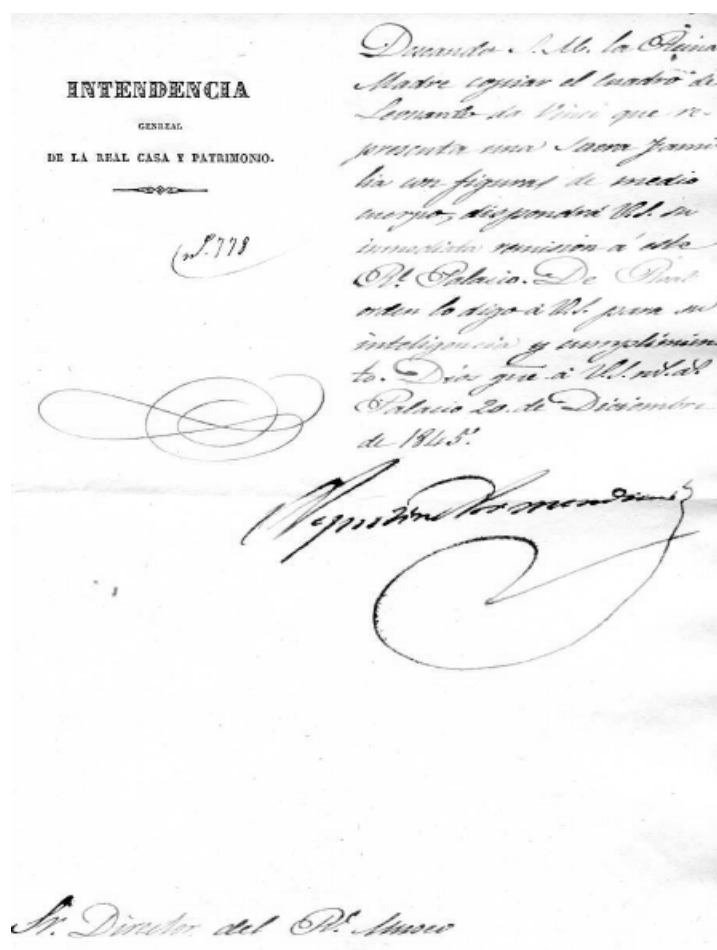 INTENDENCIA
GENREAL
DE LA REAL CASA Y PATRIMONIO.
nº. 778
Deseando S. M. la Reina
Madre copiar el cuadro de
Leonardo da Vinci que re-
presenta una Sacra Fami-
lia con figuras de medio
cuerpo, dispondrá V.S. su
inmediata remisión á este
Rl. Palacio. De Real
orden lo digo á V.S. para su
inteligencia y cumplimien-
to. Dios gue. á V.S. ms. as.
Palacio 20. de Diciembre
de 1845.
Sr. Director del Rl. Museo